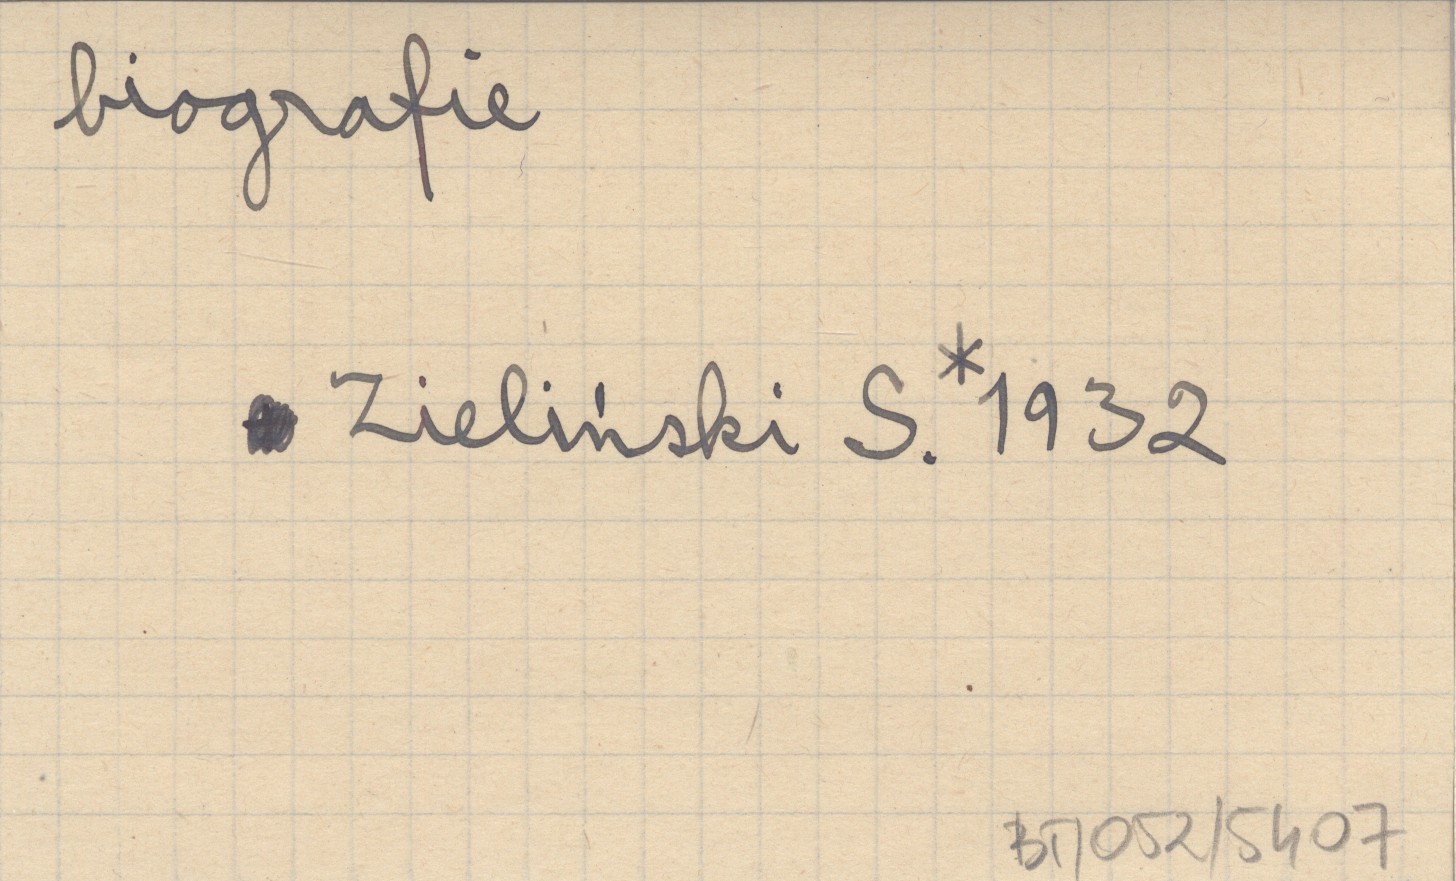 biografie
Zieliński S.*1932
BT/052/5407